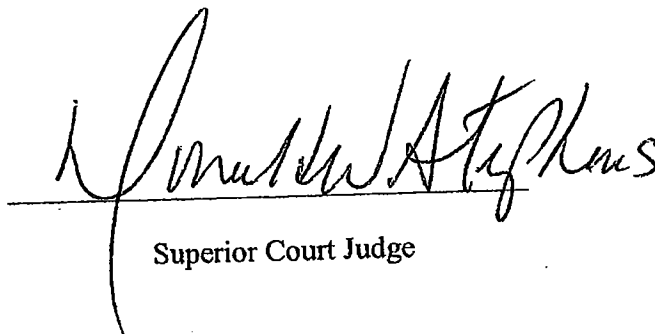 Donald W Stephens
Superior Court Judge